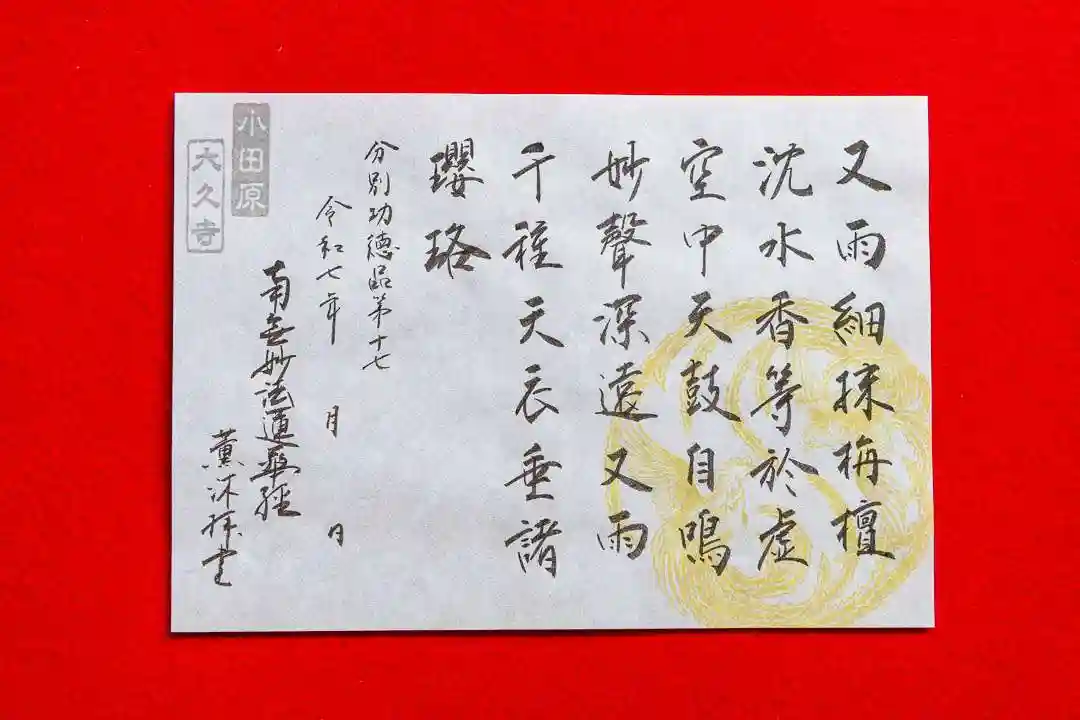 又雨細抹栴檀
沈水香等於虚
空中天鼓自鳴
妙聲深遠又雨
千種天衣垂諸
瓔珞
分別功徳品第十七
令和七年 月 日
南無妙法蓮華経
薫沐拝書
小田原
大久寺